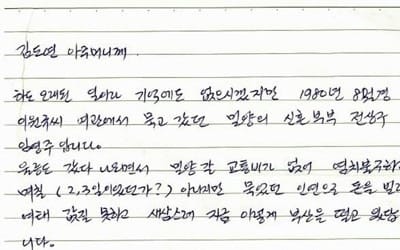 김도연 아주머니께.
하도 오래된 일이라 기억에도 없으시겠지만 1980년 8월경
이원휴씨 여관에서 묵고 갔던 밀양의 신혼부부 전상구
임영주 입니다.
울릉도 갔다 나오면서 밀양 갈 교통비가 없어 염치불구하
며칠 (2, 3일이었던가?) 아니지만 묵었던 인연으로 돈을 빌리
여태 갚질 못하고 새삼스레 지금 이렇게 부산을 떨고 있답
니다.